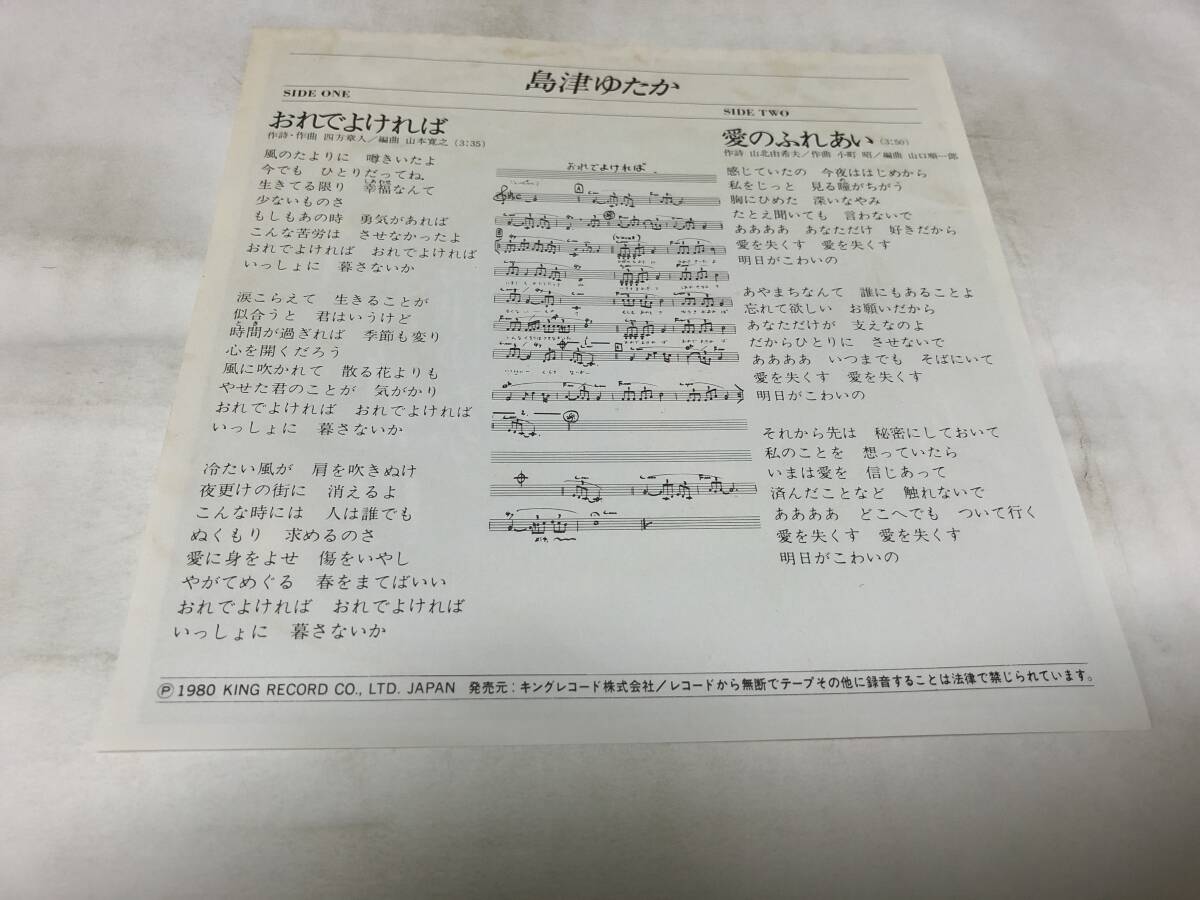 島津ゆたか
SIDE ONE
おれでよければ
作詩・作曲 四方章人／編曲 山本寛之 (3:35)
風のたよりに 噂きいたよ
今でも ひとりだってね。
生きてる限り 幸福なんて
しあわせ
少ないものさ
もしもあの時 勇気があれば
こんな苦労は させなかったよ
おれでよければ おれでよければ
いっしょに 暮さないか
涙こらえて 生きることが
似合うと 君はいうけど
時間が過ぎれば 季節も変り
とき
心を開くだろう
風に吹かれて 散る花よりも
やせた君のことが 気がかり
おれでよければ おれでよければ
いっしょに 暮さないか
冷たい風が 肩を吹きぬけ
夜更けの街に 消えるよ
こんな時には 人は誰でも
ぬくもり 求めるのさ
愛に身をよせ 傷をいやし
やがてめぐる 春をまてばいい
おれでよければ おれでよければ
いっしょに 暮さないか
おれでよければ
SIDE TWO
愛のふれあい (3:50)
作詩 山北由希夫／作曲 小町 昭／編曲 山口順一郎
感じていたの 今夜ははじめから
私をじっと 見る瞳がちがう
め
胸にひめた 深いなやみ
たとえ聞いても 言わないで
ああああ あなただけ 好きだから
愛を失くす 愛を失くす
明日がこわいの
あやまちなんて 誰にもあることよ
忘れて欲しい お願いだから
あなただけが 支えなのよ
だからひとりに させないで
ああああ いつまでも そばにいて
愛を失くす 愛を失くす
明日がこわいの
それから先は 秘密にしておいて
私のことを 想っていたら
いまは愛を 信じあって
済んだことなど 触れないで
ああああ どこへでも ついて行く
愛を失くす 愛を失くす
明日がこわいの
Ⓟ 1980 KING RECORD CO., LTD. JAPAN 発売元：キングレコード株式会社／レコードから無断でテープその他に録音することは法律で禁じられています。